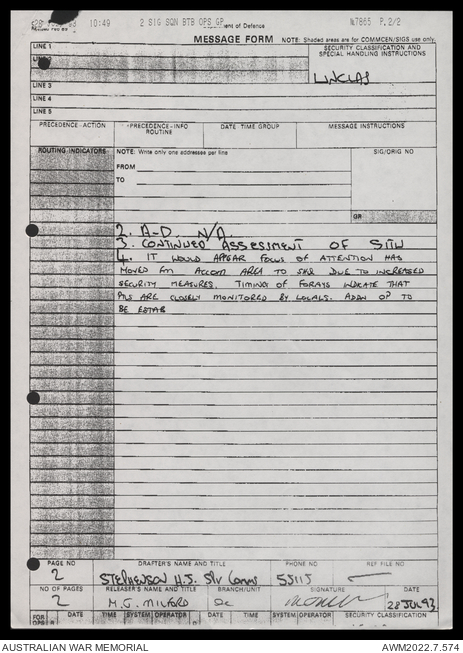 10:49 2 SIG SQN BTB OPS GP №7865 P.2/2
ent of Defence
MESSAGE FORM NOTE: Shaded areas are for COMMCEN/SIGS use only.
LINE 1 SECURITY CLASSIFICATION AND
SPECIAL HANDLING INSTRUCTIONS
UNCLAS
LINE 3
LINE 4
LINE 5
PRECEDENCE-ACTION PRECEDENCE-INFO DATE TIME GROUP MESSAGE INSTRUCTIONS
ROUTINE
ROUTING INDICATORS NOTE: Write only one addressee per line SIG/ORIG NO
FROM
TO
GR
2. A-D. N/A.
3. CONTINUED ASSESSMENT OF SITU
4. IT WOULD APPEAR FOCUS OF ATTENTION HAS
MOVED FM ACCOM AREA TO DUE TO INCREASED
SECURITY MEASURES. TIMING OF FORAYS INDICATE THAT
ARE CLOSELY MONITORED BY LOCALS. ADDN OP TO
BE ESTAB
PAGE NO DRAFTER'S NAME AND TITLE PHONE NO REF FILE NO
2 STEPHENSON H.J. 55115
NO OF PAGES RELEASER'S NAME AND TITLE BRANCH/UNIT SIGNATURE DATE
2 M.G. MILFORD 28 JUL 93
FOR OPS DATE TIME SYSTEM OPERATOR DATE TIME SYSTEM OPERATOR SECURITY CLASSIFICATION
AUSTRALIAN WAR MEMORIAL AWM2022.7.574